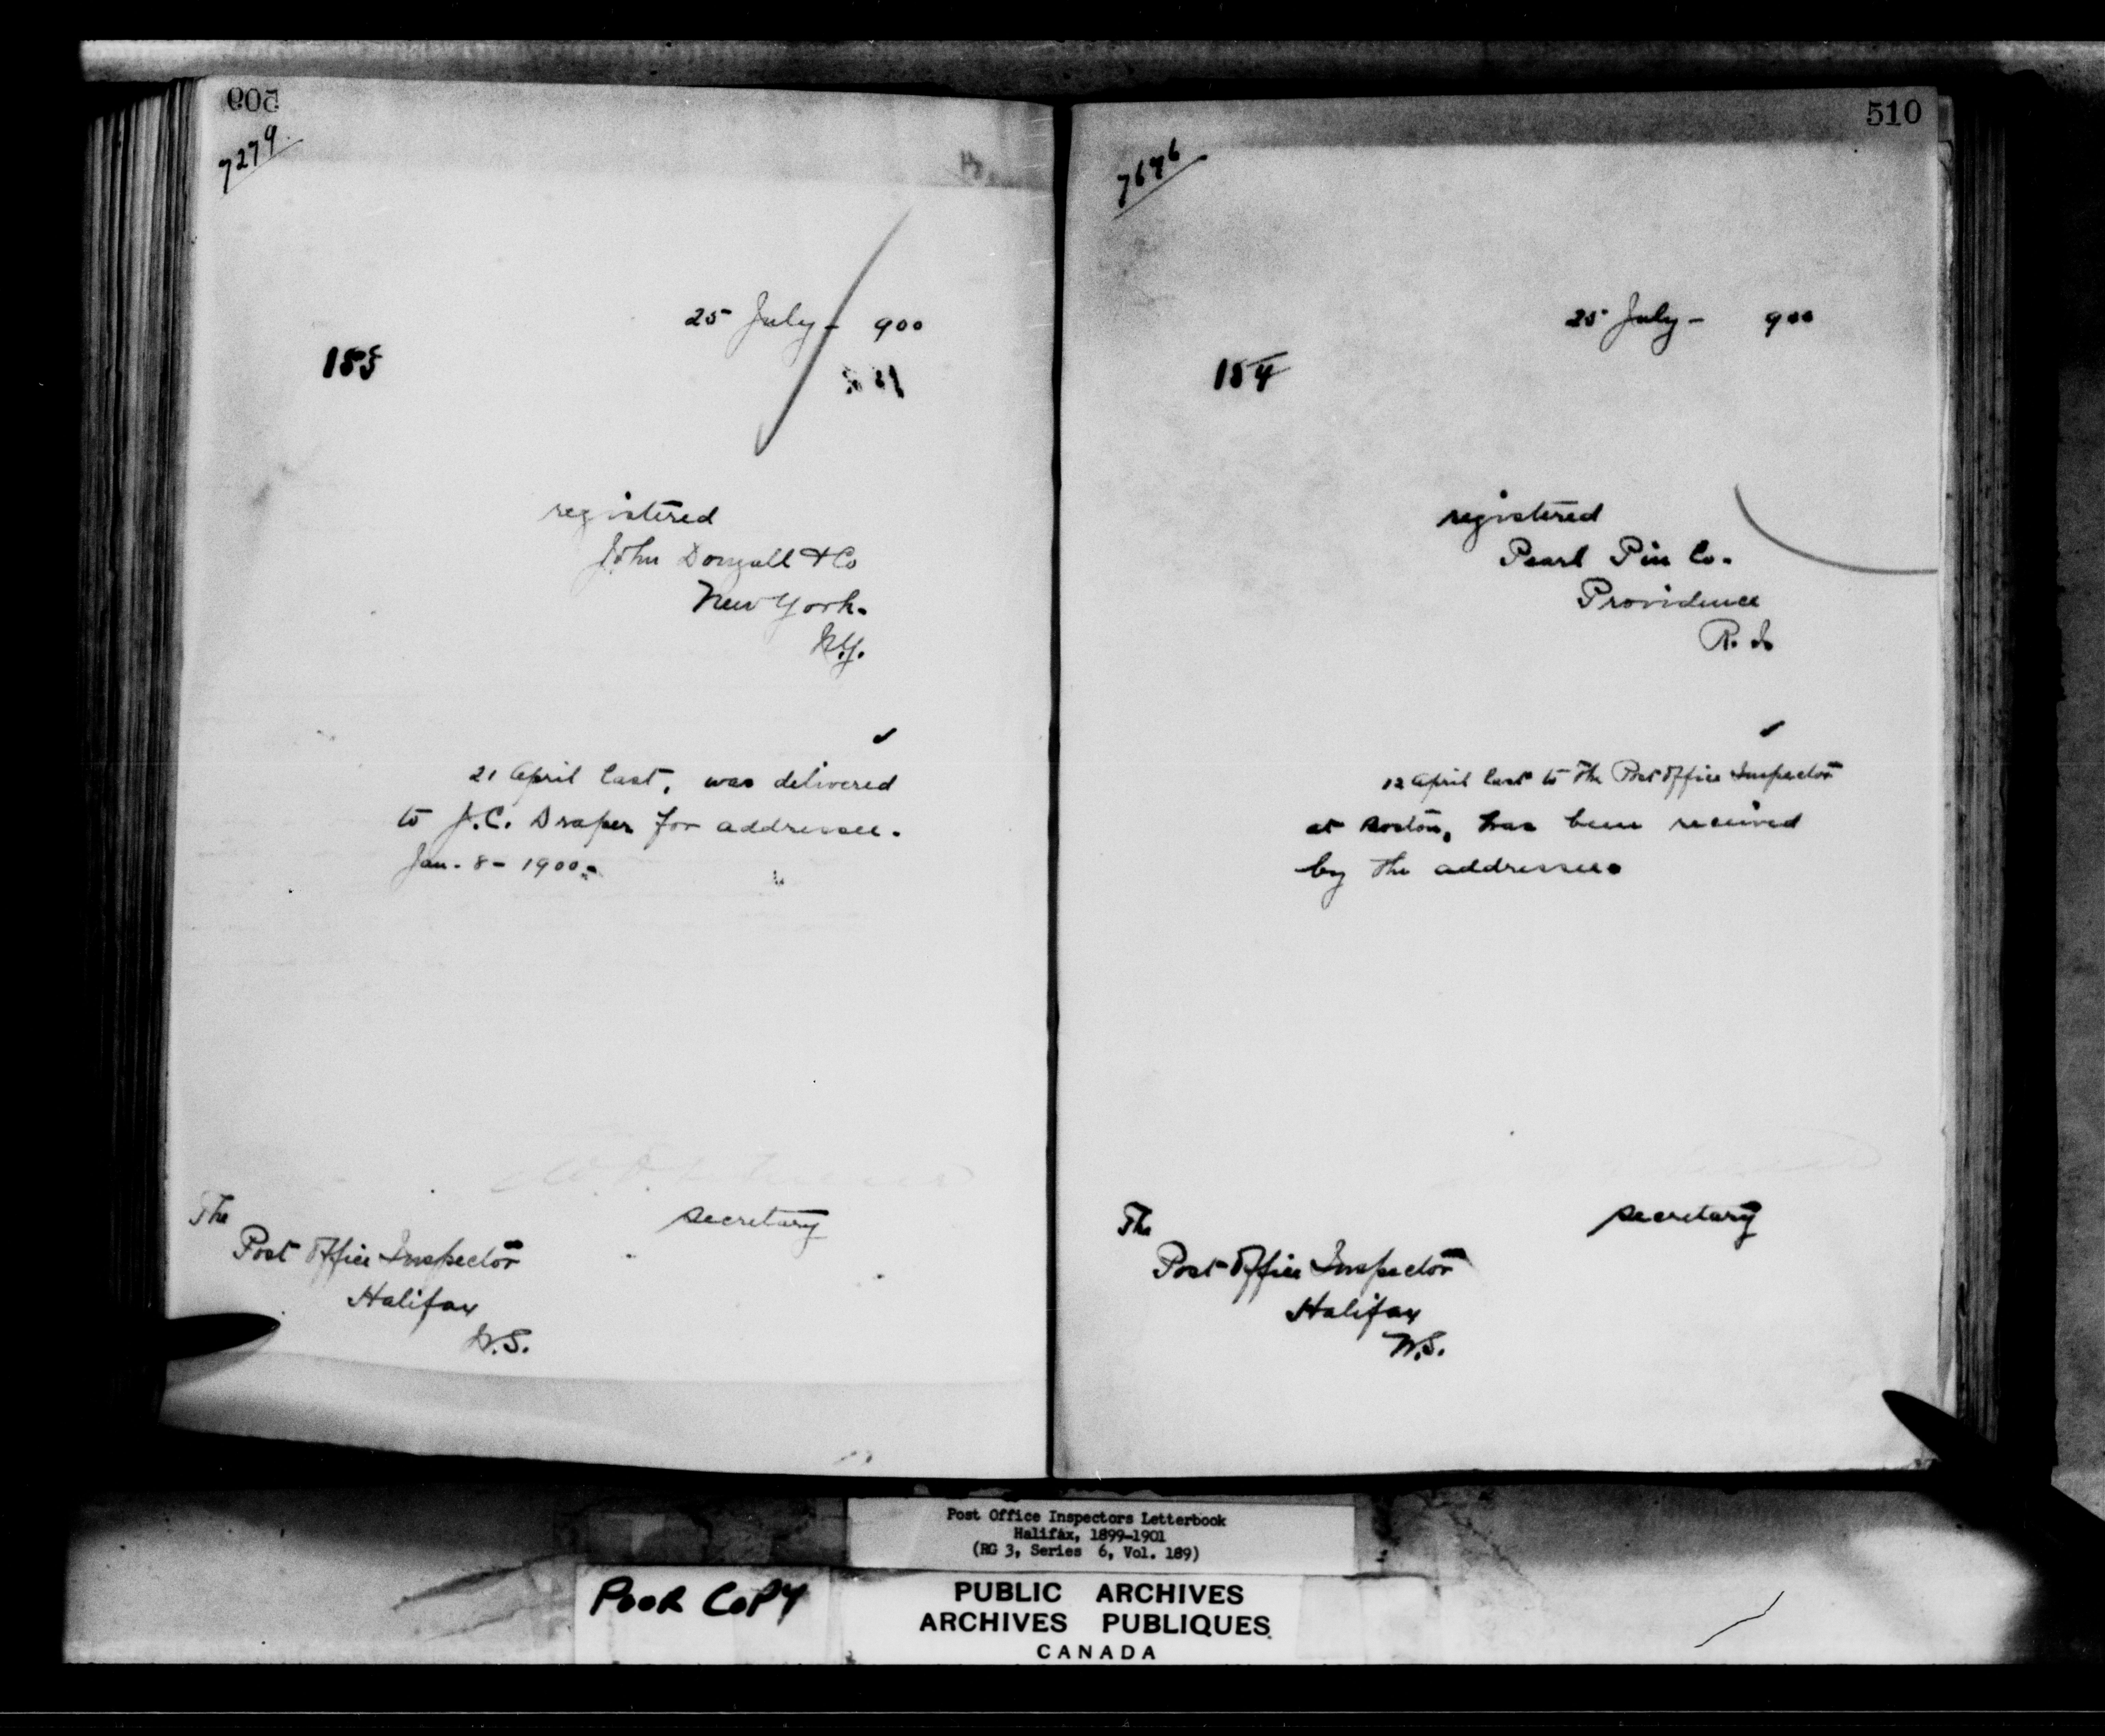 509
7279
25 July - 900
185
registered
John Dougall & Co
New York.
N.Y.
21 April last, was delivered
to J.C. Draper for addressee.
Jan. 8 - 1900.
secretary
The
Post Office Inspector
Halifax
N.S.
510
7676
25 July - 900
184
registered
Pearl Pin Co.
Providence
R. I.
12 April last to the Post Office Inspector
at Boston, has been received
by the addressee.
secretary
The
Post Office Inspector
Halifax
N.S.
Post Office Inspectors Letterbook
Halifax, 1899-1901
(RG 3, Series 6, Vol. 189)
POOR COPY
PUBLIC ARCHIVES
ARCHIVES PUBLIQUES
CANADA